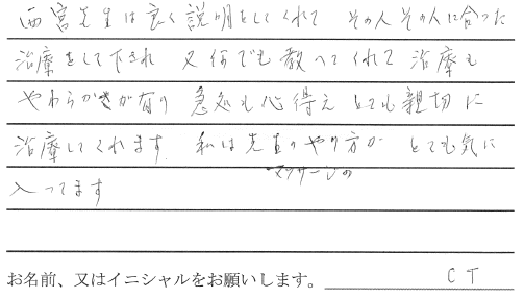 西宮先生は良く説明をしてくれて その人その人に合った
治療をして下され 又何でも教へてくれて 治療も
やわらかさが有り 急処も心得え とても親切に
治療してくれます。 私は先生のやり方が とても気に
マッサージの
入ってます
お名前、又はイニシャルをお願いします。 CT